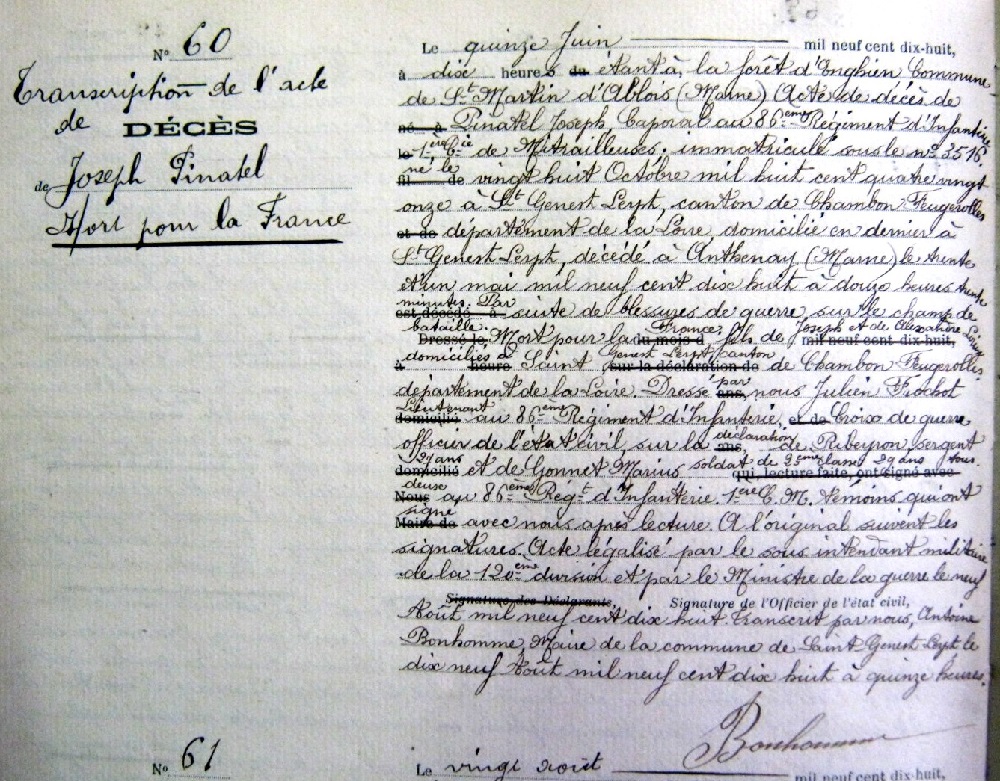 N° 60
Transcription de l'acte
de DÉCÈS
de Joseph Pinatel
Mort pour la France
Le quinze Juin mil neuf cent dix-huit,
à dix heures du etant à, la forêt d'Enghien Commune
de St Martin d'Ablois (Marne) Acte de décès de
né à Pinatel Joseph Caporal au 86eme Régiment d'Infanterie
le 1ère Cie de Mitrailleuses. immatriculé sous le n° 3516
né le
fil de vingt huit Octobre mil huit cent quatre vingt
onze à St Genest Lerpt, canton de Chambon Feugerolles
et de département de la Loire domicilié en dernier à
St Genest Lerpt, décédé à Anthenay (Marne) le trente
et un mai mil neuf cent dix huit à douze heures trente
minutes. Par
est décédé à suite de blessures de guerre, sur le champ de
bataille. France, Joseph et de
Dressé le, Mort pour la du mois d fils de mil neuf cent dix-huit,
domiciliés à Genest Lerpt canton
à heure Saint sur la déclaration de de Chambon Feugerolles
département de la Loire. Dressé par
ans, nous Julien Frochot
Lieutenant
domicilié au 86eme Régiment d'Infanterie, et de Croix de guerre,
officier de l'état civil, sur la déclaration
ans, de Ribeyron, sergent
29 ans
domicilié et de Gonnet Marius soldat de classe 29 ans tous
qui, lecture faite, ont signé avec
deux
Nous au 86eme Régt d'Infanterie. 1ere C. M. temoins qui ont
signé
Maire de avec nous après lecture. A l'original suivent les
signatures. Acte légalisé par le sous intendant militaire
de la 120eme division et par le Ministre de la guerre le neuf
Signature des Déclarants, Signature de l'Officier de l'état civil,
Août mil neuf cent dix huit transcrit par nous, Antoine
Bonhomme, Maire de la commune de Saint Genest Lerpt le
dix neuf Août mil neuf cent dix huit à quinze heures.
Bonhomme
N° 61
Le vingt août mil neuf cent dix-huit,